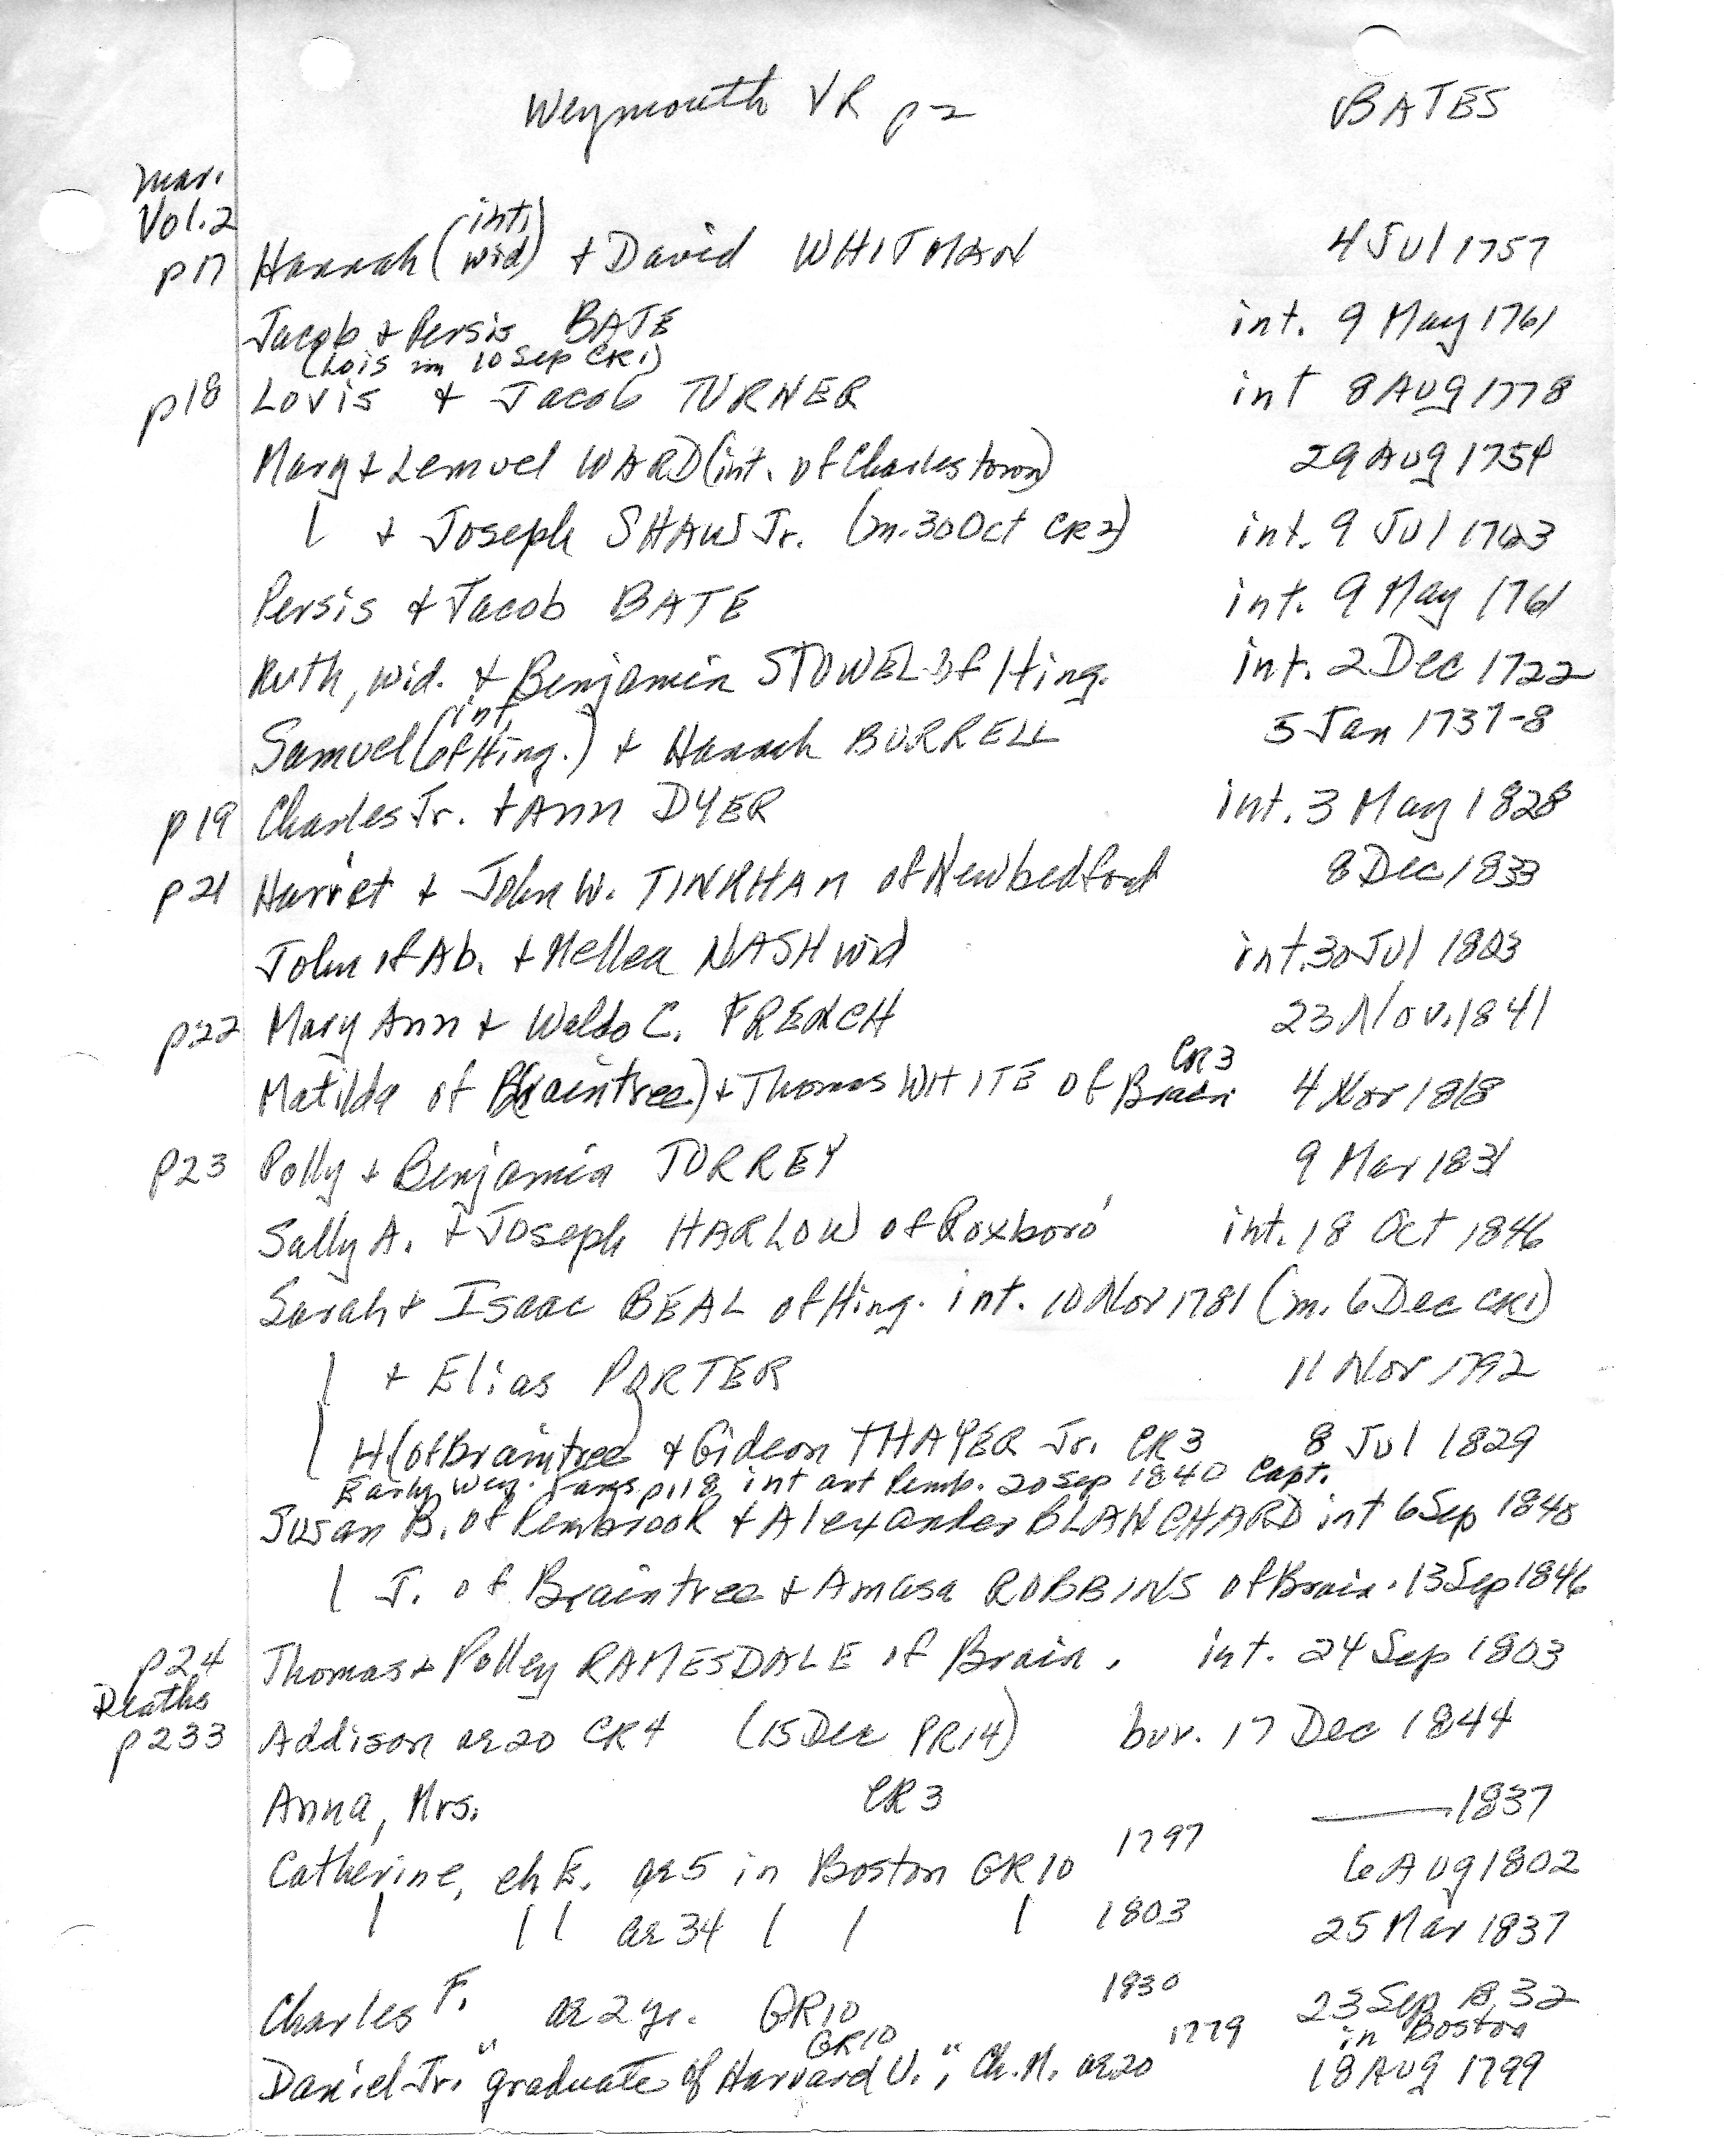 Weymouth VR p2 BATES
mar.
Vol.2
(int.
p17 Hannah (wid) + David WHITMAN 4 Jul 1757
Jacob + Persis BATE int. 9 May 1761
(Lois m 10 Sep CR1)
p18 Lovis + Jacob TURNER int 8 Aug 1778
Mary + Lemuel WARD (int. of Charlestown) 29 Aug 1754
| + Joseph SHAW Jr. (m. 30 Oct CR2) int. 9 Jul 1763
Persis + Jacob BATE int. 9 May 1761
Ruth, wid. + Benjamin STOWEL of Hing. int. 2 Dec 1722
(int.
Samuel (of Hing.) + Hannah BURRELL 5 Jan 1737-8
p19 Charles Jr. + Ann DYER int. 3 May 1828
p21 Harriet + John W. TINKHAM of Newbedford 8 Dec 1833
John of Ab. + Mellea NASH wid int. 30 Jul 1803
p22 Mary Ann + Waldo C. FRENCH 23 Nov. 1841
CR3
Matilda of B(raintree) + Thomas WHITE of Brain 4 Nov 1818
p23 Polly + Benjamin TORREY 9 Mar 1831
Sally A. + Joseph HARLOW of Roxboro' int. 18 Oct 1846
Sarah + Isaac BEAL of Hing. int. 10 Nov 1781 (m. 6 Dec CR1)
| + Elias PORTER 11 Nov 1792
| H. (of Braintree) + Gideon THAYER Jr. CR3 8 Jul 1829
Early Wey. p118 int at Pemb. 20 Sep 1840 Capt.
Susan B. of Pembrook + Alexander BLANCHARD int 6 Sep 1840
| J. of Braintree + Amasa ROBBINS of Brain. 13 Sep 1846
p24 Thomas + Polley RAMESDALE of Brain. int. 24 Sep 1803
Deaths
p233 Addison ae 20 CR4 (15 Dec PR14) bur. 17 Dec 1844
Anna, Mrs. CR3 —— 1837
Catherine, ch E. ae 5 in Boston GR10 1797 6 Aug 1802
| | | ae 34 | | | 1803 25 Mar 1837
Charles F. ae 2 yr. GR10 1830 23 Sep 1832
GR10 1779 in Boston
Daniel Jr. "graduate of Harvard U.", Ch. M. ae 20 18 Aug 1799